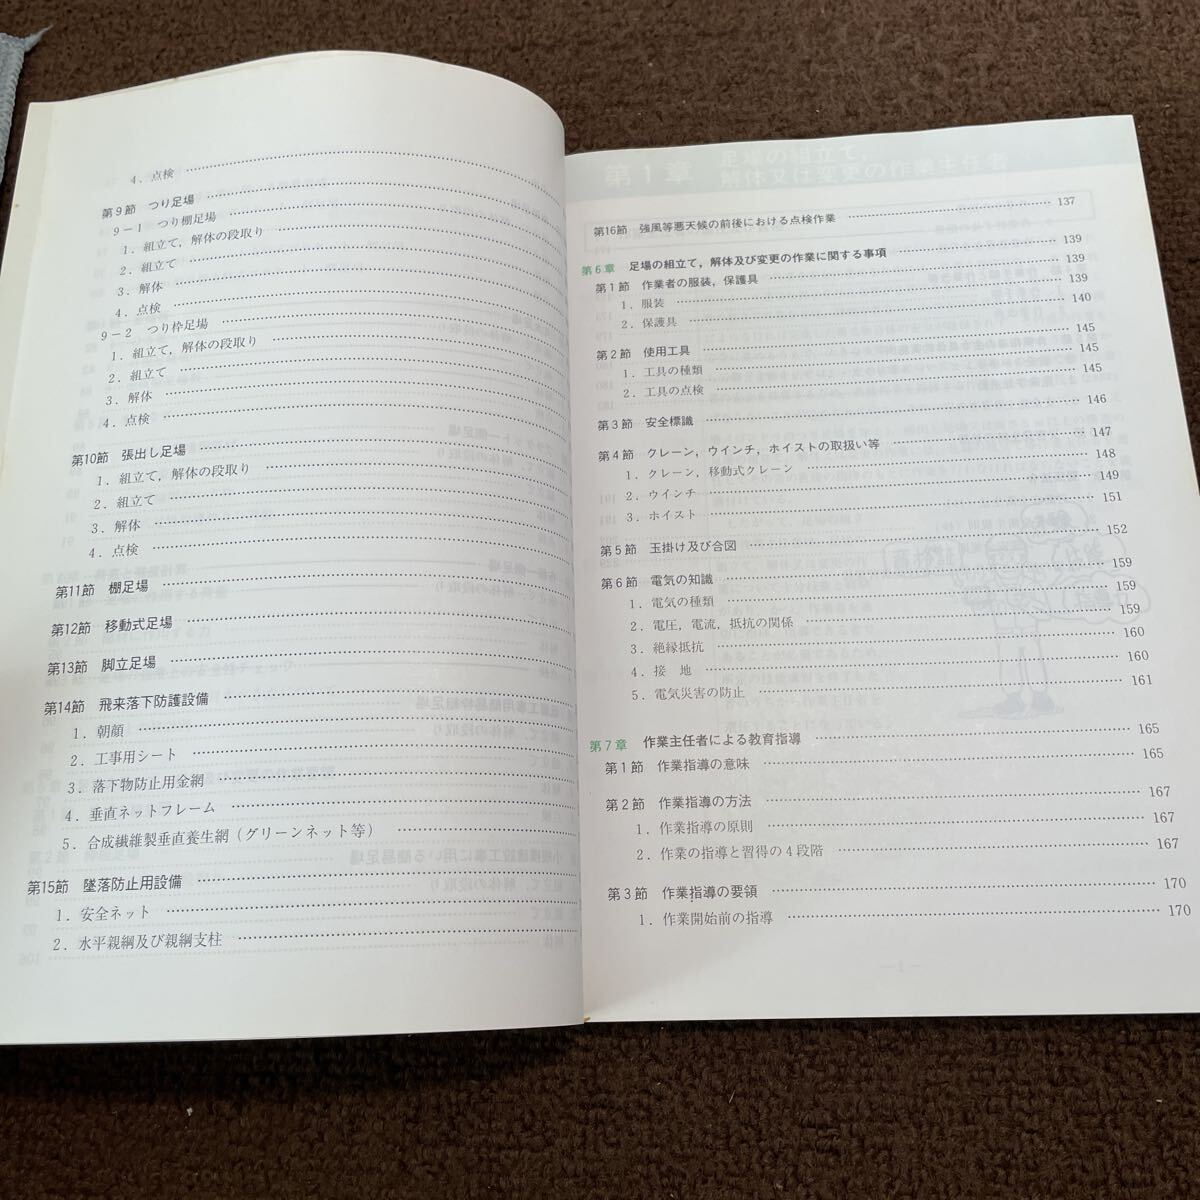 4．点検
第9節　つり足場
9－1　つり棚足場
1．組立て，解体の段取り
2．組立て
3．解体
4．点検
9－2　つり枠足場
1．組立て，解体の段取り
2．組立て
3．解体
4．点検
第10節　張出し足場
1．組立て，解体の段取り
2．組立て
3．解体
4．点検
第11節　棚足場
第12節　移動式足場
第13節　脚立足場
第14節　飛来落下防護設備
1．朝顔
2．工事用シート
3．落下物防止用金網
4．垂直ネットフレーム
5．合成繊維製垂直養生網（グリーンネット等）
第15節　墜落防止用設備
1．安全ネット
2．水平親綱及び親綱支柱
第1章　足場の組立て，
解体又は変更の作業主任者
第16節　強風等悪天候の前後における点検作業 137
第6章　足場の組立て，解体及び変更の作業に関する事項 139
第1節　作業者の服装，保護具 139
1．服装 139
2．保護具 140
第2節　使用工具 145
1．工具の種類 145
2．工具の点検 145
第3節　安全標識 146
第4節　クレーン，ウインチ，ホイストの取扱い等 147
1．クレーン，移動式クレーン 148
2．ウインチ 149
3．ホイスト 151
第5節　玉掛け及び合図 152
第6節　電気の知識 159
1．電気の種類 159
2．電圧，電流，抵抗の関係 159
3．絶縁抵抗 160
4．接　地 160
5．電気災害の防止 161
第7章　作業主任者による教育指導 165
第1節　作業指導の意味 165
第2節　作業指導の方法 167
1．作業指導の原則 167
2．作業の指導と習得の4段階 167
第3節　作業指導の要領 170
1．作業開始前の指導 170